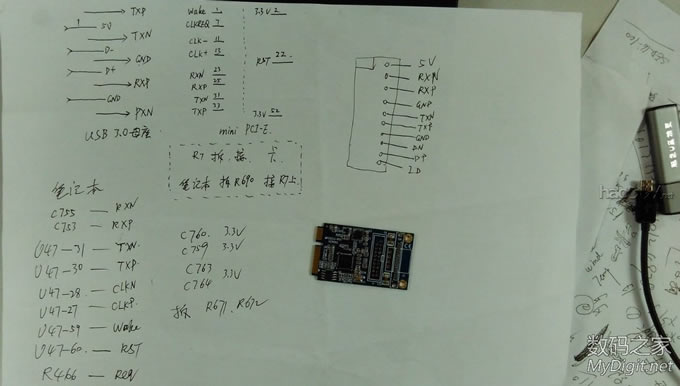 TXP
1 5V
TXN
D-
GND
D+
RXP
GND
PXN
USB 3.0母座
Wake 1
CLKREQ 7
CLK- 11
CLK+ 13
RXN 23
RXP 25
TXN 31
TXP 33
3.3V 2
RST 22
3.3V 52
mini PCI-E
R7 拆、接 卡
笔记本 拆R690 接R7上
5V
RXN
RXP
GNP
TXN
TXP
GND
DN
DP
ID
笔记本
C755 — RXN
C753 — RXP
U47-31 — TXN
U47-30 — TXP
U47-28 — CLKN
U47-27 — CLKP
U47-59 — Wake
U47-60 — RST
R466 — REQ
C760 3.3V
C759 3.3V
C763
C764 3.3V
拆 R671、R672
数码之家
MyDigit.net